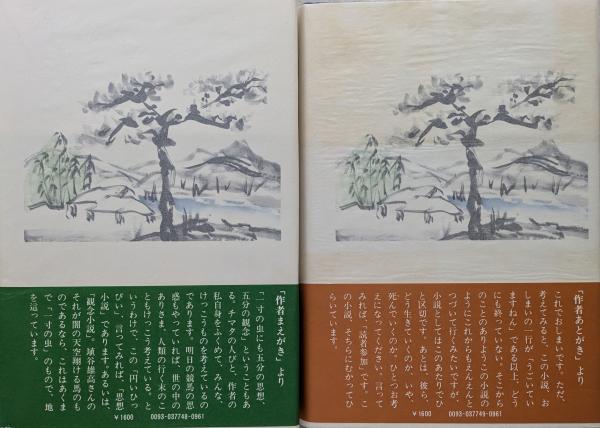 「作者まえがき」より
「一寸の虫にも五分の思想、
五分の観念」ということもあ
る。チマタの人びと、作者の
私自身をふくめて、みんな、
けっこうものを考えているの
であります。明日の競馬の思
惑もやっていれば、世の中の
ありさま、人類の行く末のこ
ともけっこう考えている。と
いうわけで、この「円いひっ
ぴい」、言ってみれば、「思想
小説」であります。あるいは、
「観念小説」。埴谷雄高さんの
それが闇の天空翔ける馬のも
のであるなら、これはあくま
で「一寸の虫」のもので、地
を這っています。
¥1600 0093-037748-0961
「作者あとがき」より
これでおしまいです。ただ、
考えてみると、この小説、お
しまいの一行が、「うごいてい
ますねん」である以上、どう
にも終っていない。そこから
のことのありようこの小説の
ようにこれからもえんえんと
つづいて行くみたいですが、
小説としてはこのあたりでひ
と区切です。あとは、彼ら、
どう生きていくのか、いや、
死んで いくのか、ひとつお考
えになってください。言って
みれば、「読者参加」です。こ
の小説、そちらにむかってひ
らいています。
¥1600 0093-037749-0961